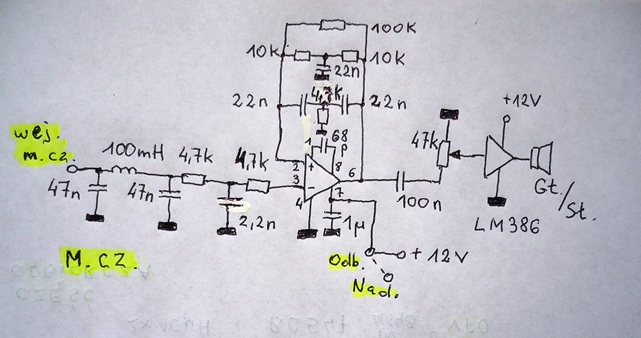 100K
10K
10K
22n
22n
4,7k
22n
+12V
wej.
m.cz.
100mH
4,7k
4,7k
1
68
p
8
47k
2
+
6
3
-
7
4
47n
47n
2,2n
1µ
100n
LM386
Gt./St.
M.CZ.
Odb.
+12V
Nad.